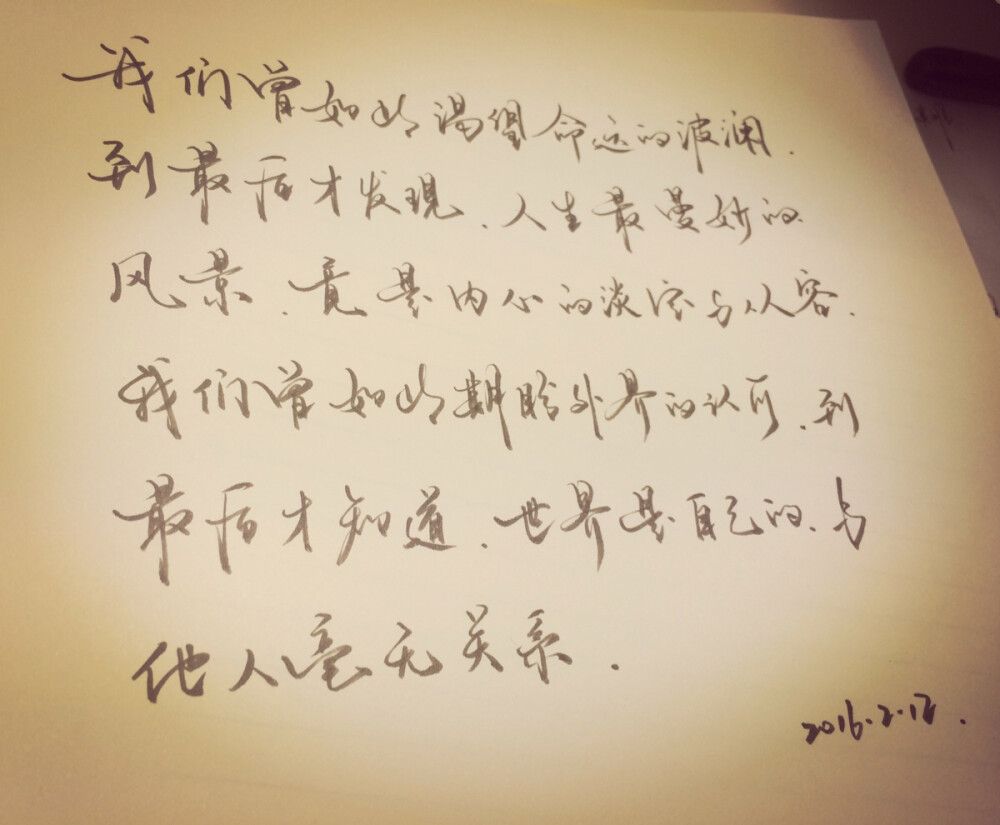 我们曾如此渴望命运的波澜.
到最后才发现.人生最曼妙的
风景.竟是内心的淡定与从容.
我们曾如此期盼外界的认可.到
最后才知道.世界是自己的.与
他人毫无关系.
2016.2.12.